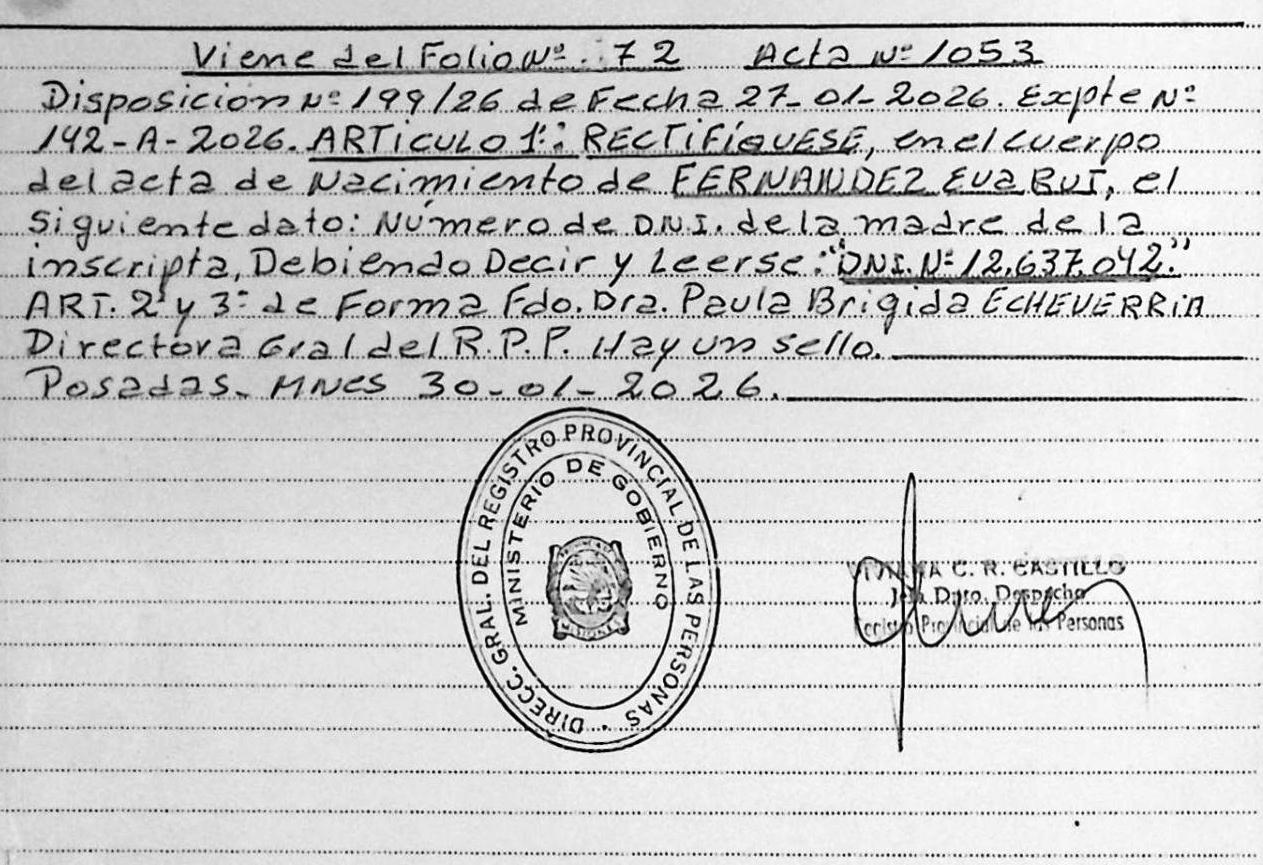 Viene del Folio Nº. 72 Acta Nº 1053
Disposición Nº 199/26 de Fecha 27-01-2026. Expte Nº
142-A-2026. ARTICULO 1º: RECTIFÍQUESE, en el cuerpo
del acta de Nacimiento de FERNANDEZ Eva Rut, el
siguiente dato: Número de DNI. de la madre de la
inscripta, Debiendo Decir y Leerse: "DNI. Nº 12.637.042."
ART. 2º y 3º de Forma Fdo. Dra. Paula Brigida ECHEVERRIA
Directora Gral del R.P.P. Hay un sello.
Posadas. MNES 30-01-2026.
DIRECC. GRAL. DEL REGISTRO PROVINCIAL DE LAS PERSONAS
MINISTERIO DE GOBIERNO
MISIONES
C. R. CASTILLO
Jefa Dpto. Despacho
Registro Provincial de las Personas